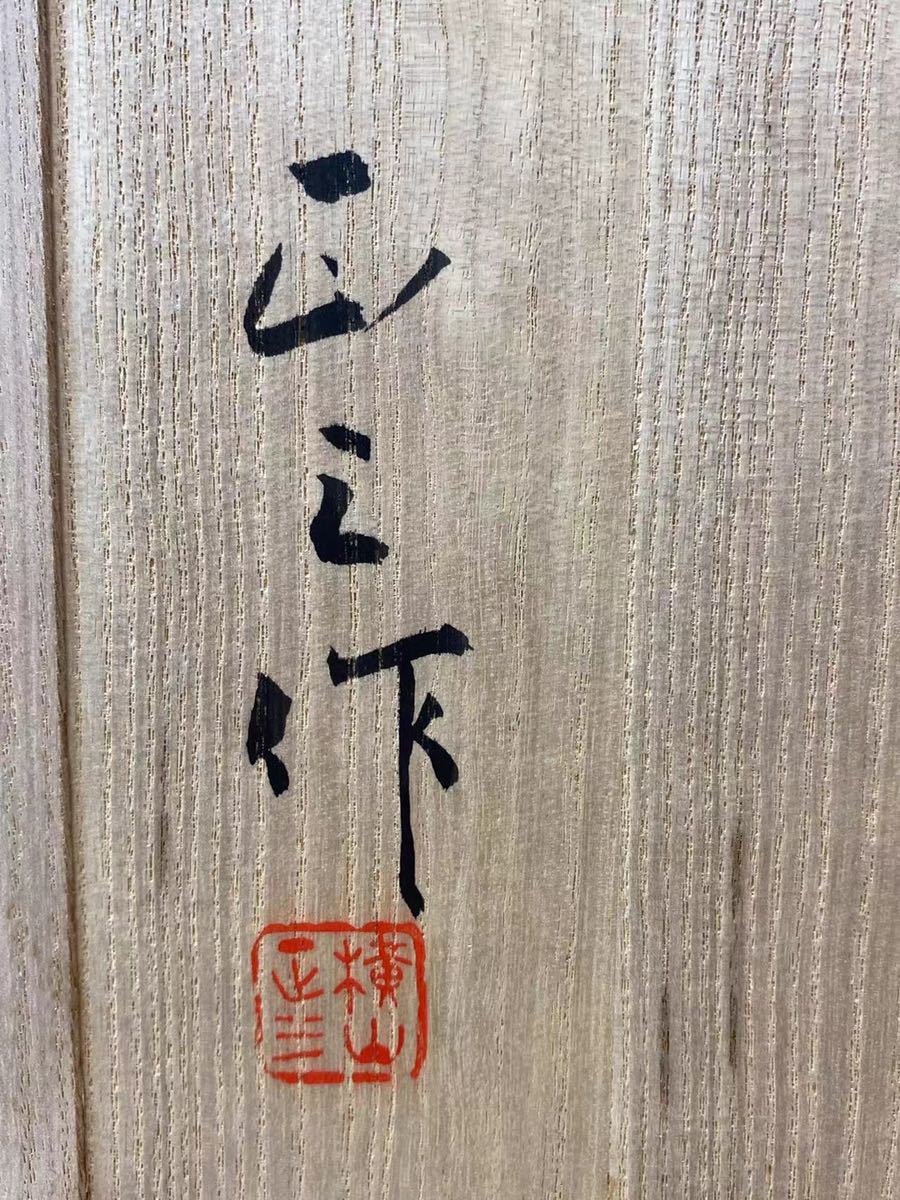 正三作
横山
正三